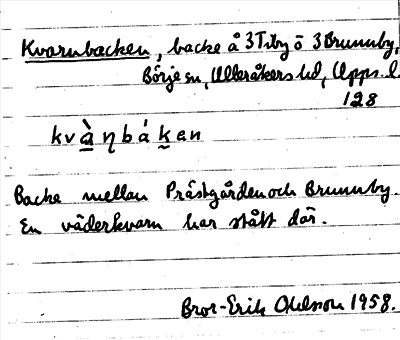 Kvarnbacken, backe å 3 Tiby ö 3 Brunnby,
Börje sn, Ulleråkers hd, Upps. l.
128
kvàηbákan
Backe mellan Prästgården och Brunnby.
En väderkvarn har stått där.
Bror-Erik Ohlsson 1958.